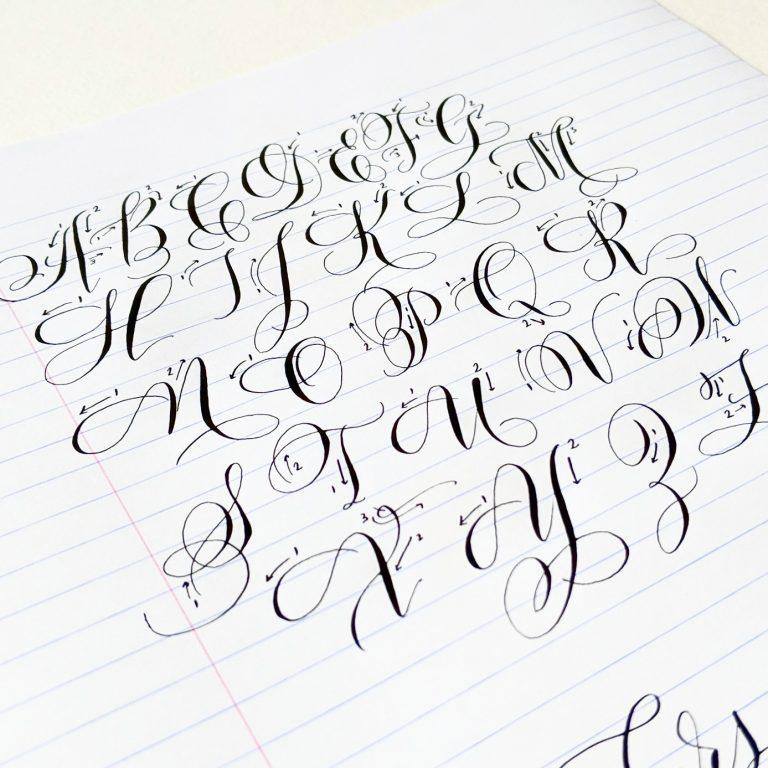 A B C D E F G
H I J K L M
N O P Q R
S T U V W
X Y Z